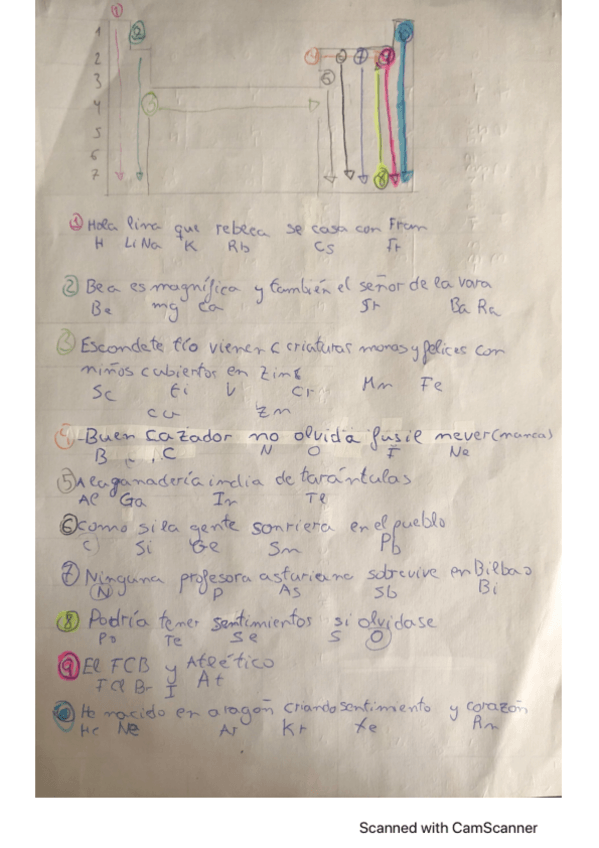 1 2 10
1
2 4 6 7 9
3 5
4 3
5
6
7 8
1 Hola lina que rebeca se casa con Fran
H Li Na K Rb Cs Fr
2 Bea es magnífica y también el señor de la vara
Be mg Ca Sr Ba Ra
3 Escondete tío vienen 6 criaturas monas y felices con
niños cubiertos en zinc
Sc Ti V Cr Mn Fe
Cu Zn
4 -Buen cazador no olvida fusil never (marca)
B C N O F Ne
5 A la ganadería india de tarántulas
Al Ga In Tl
6 como si la gente sonriera en el pueblo
C Si Ge Sn Pb
7 Ninguna profesora asturiana sobrevive en Bilbao
N P As Sb Bi
8 Podría tener sentimientos si olvidase
Po Te Se S O
9 El FCB y Atlético
F Cl Br I At
10 He nacido en aragón criando sentimiento y corazón
He Ne Ar Kr Xe Rn
Scanned with CamScanner